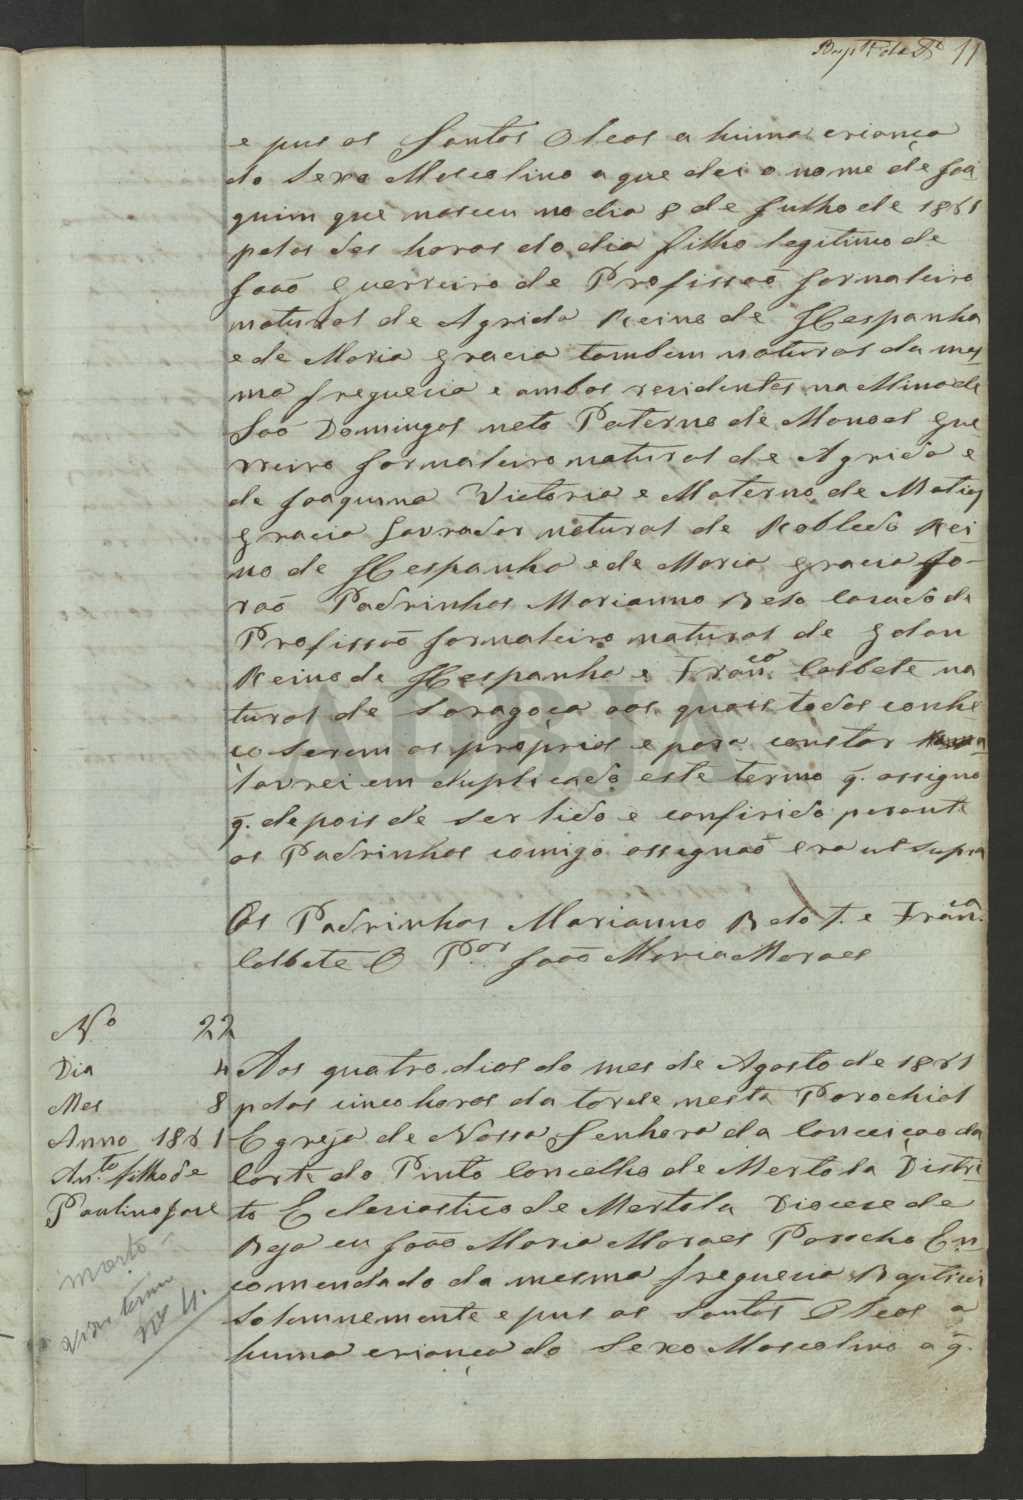 11
e pus os Santos Oleos a huma criança
do Sexo Mascolino a que dei o nome de Joa
quim que nasceu no dia 8 de Julho de 1861
pelas des horas do dia filho legitimo de
João Guerreiro de Profissaõ Jornaleiro
natural de Agrida Reino de Hespanha
e de Maria Gracia tambem natural da mes
ma freguecia e ambos residentes na Mina de
Saõ Domingos neto Paterno de Manoel Gue
rreiro Jornaleiro natural de Agrida e
de Joaquina Victoria e Materno de Matias
Gracia Lavrador natural de Robledo Rei
no de Hespanha e de Maria Gracia fo-
raõ Padrinhos Marianno Belo Casado de
Profissaõ Jornaleiro natural de
Reino de Hespanha e Fran.co Colbete na
tural de Saragoça aos quais todos conhe
ço serem os proprios e para constar
lavrei em duplicado este termo q. assigno
q. depois de ser lido e confirido perante
os Padrinhos comigo assignaõ era ut supra
Os Padrinhos Marianno Belo T. e Fran.co
Colbete O P.or Joaõ Maria Moraes
N.o 22
Dia 4
Mes 8
Anno 1861
An.to filho de
Paulino José
morto
vide termo
Nº 4.
Aos quatro dias do mes de Agosto de 1861
pelas cinco horas da tarde nesta Parochial
Egreja de Nossa Senhora da Conceiçao da
Corte do Pinto Concelho de Mertola Distri
to Eclesiastico de Mertola Diocese de
Beja eu Joaõ Maria Moraes Parocho En
comendado da mesma freguecia Baptizei
Solemnemente e pus os Santos Oleos a
huma criança do Sexo Mascolino a q.
ADBJA